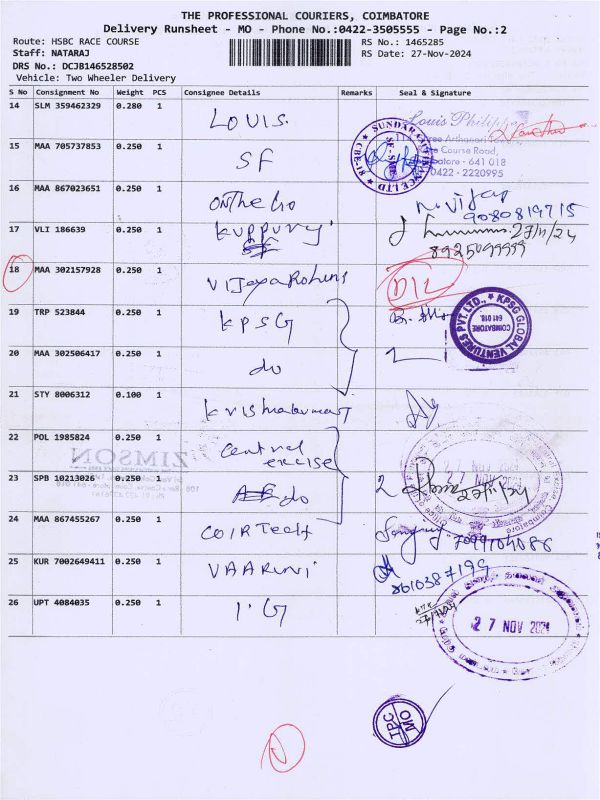 THE PROFESSIONAL COURIERS, COIMBATORE
Delivery Runsheet - MO - Phone No.:0422-3505555 - Page No.:2
Route: HSBC RACE COURSE RS No.: 1465285
Staff: NATARAJ RS Date: 27-Nov-2024
DRS No.: DCJB146528502
Vehicle: Two Wheeler Delivery
S No Consignment No Weight PCS Consignee Details Remarks Seal & Signature
14 SLM 359462329 0.280 1 LOUIS. Louis Philippe
Race Course Road,
641 018
0422 - 2220995
15 MAA 705737853 0.250 1 SF SUNDARAM FINANCE LTD
16 MAA 867023651 0.250 1 onthe Go
9080819715
17 VLI 186639 0.250 1 27/11/24
8925099999
18 MAA 302157928 0.250 1
19 TRP 523844 0.250 1 KPSG KPSG GLOBAL VENTURES PVT.LTD., COIMBATORE 641 018.
20 MAA 302506417 0.250 1 do
21 STY 8006312 0.100 1
22 POL 1985824 0.250 1 Central
excise 27 NOV 2024
ZIMSON
23 SPB 10213026 0.250 1 do 2
24 MAA 867455267 0.250 1 COIRTech 7099104088
25 KUR 7002649411 0.250 1 VAARUNI 8610387199
26 UPT 4084035 0.250 1 I.G 27 NOV 2024
TPC
MO